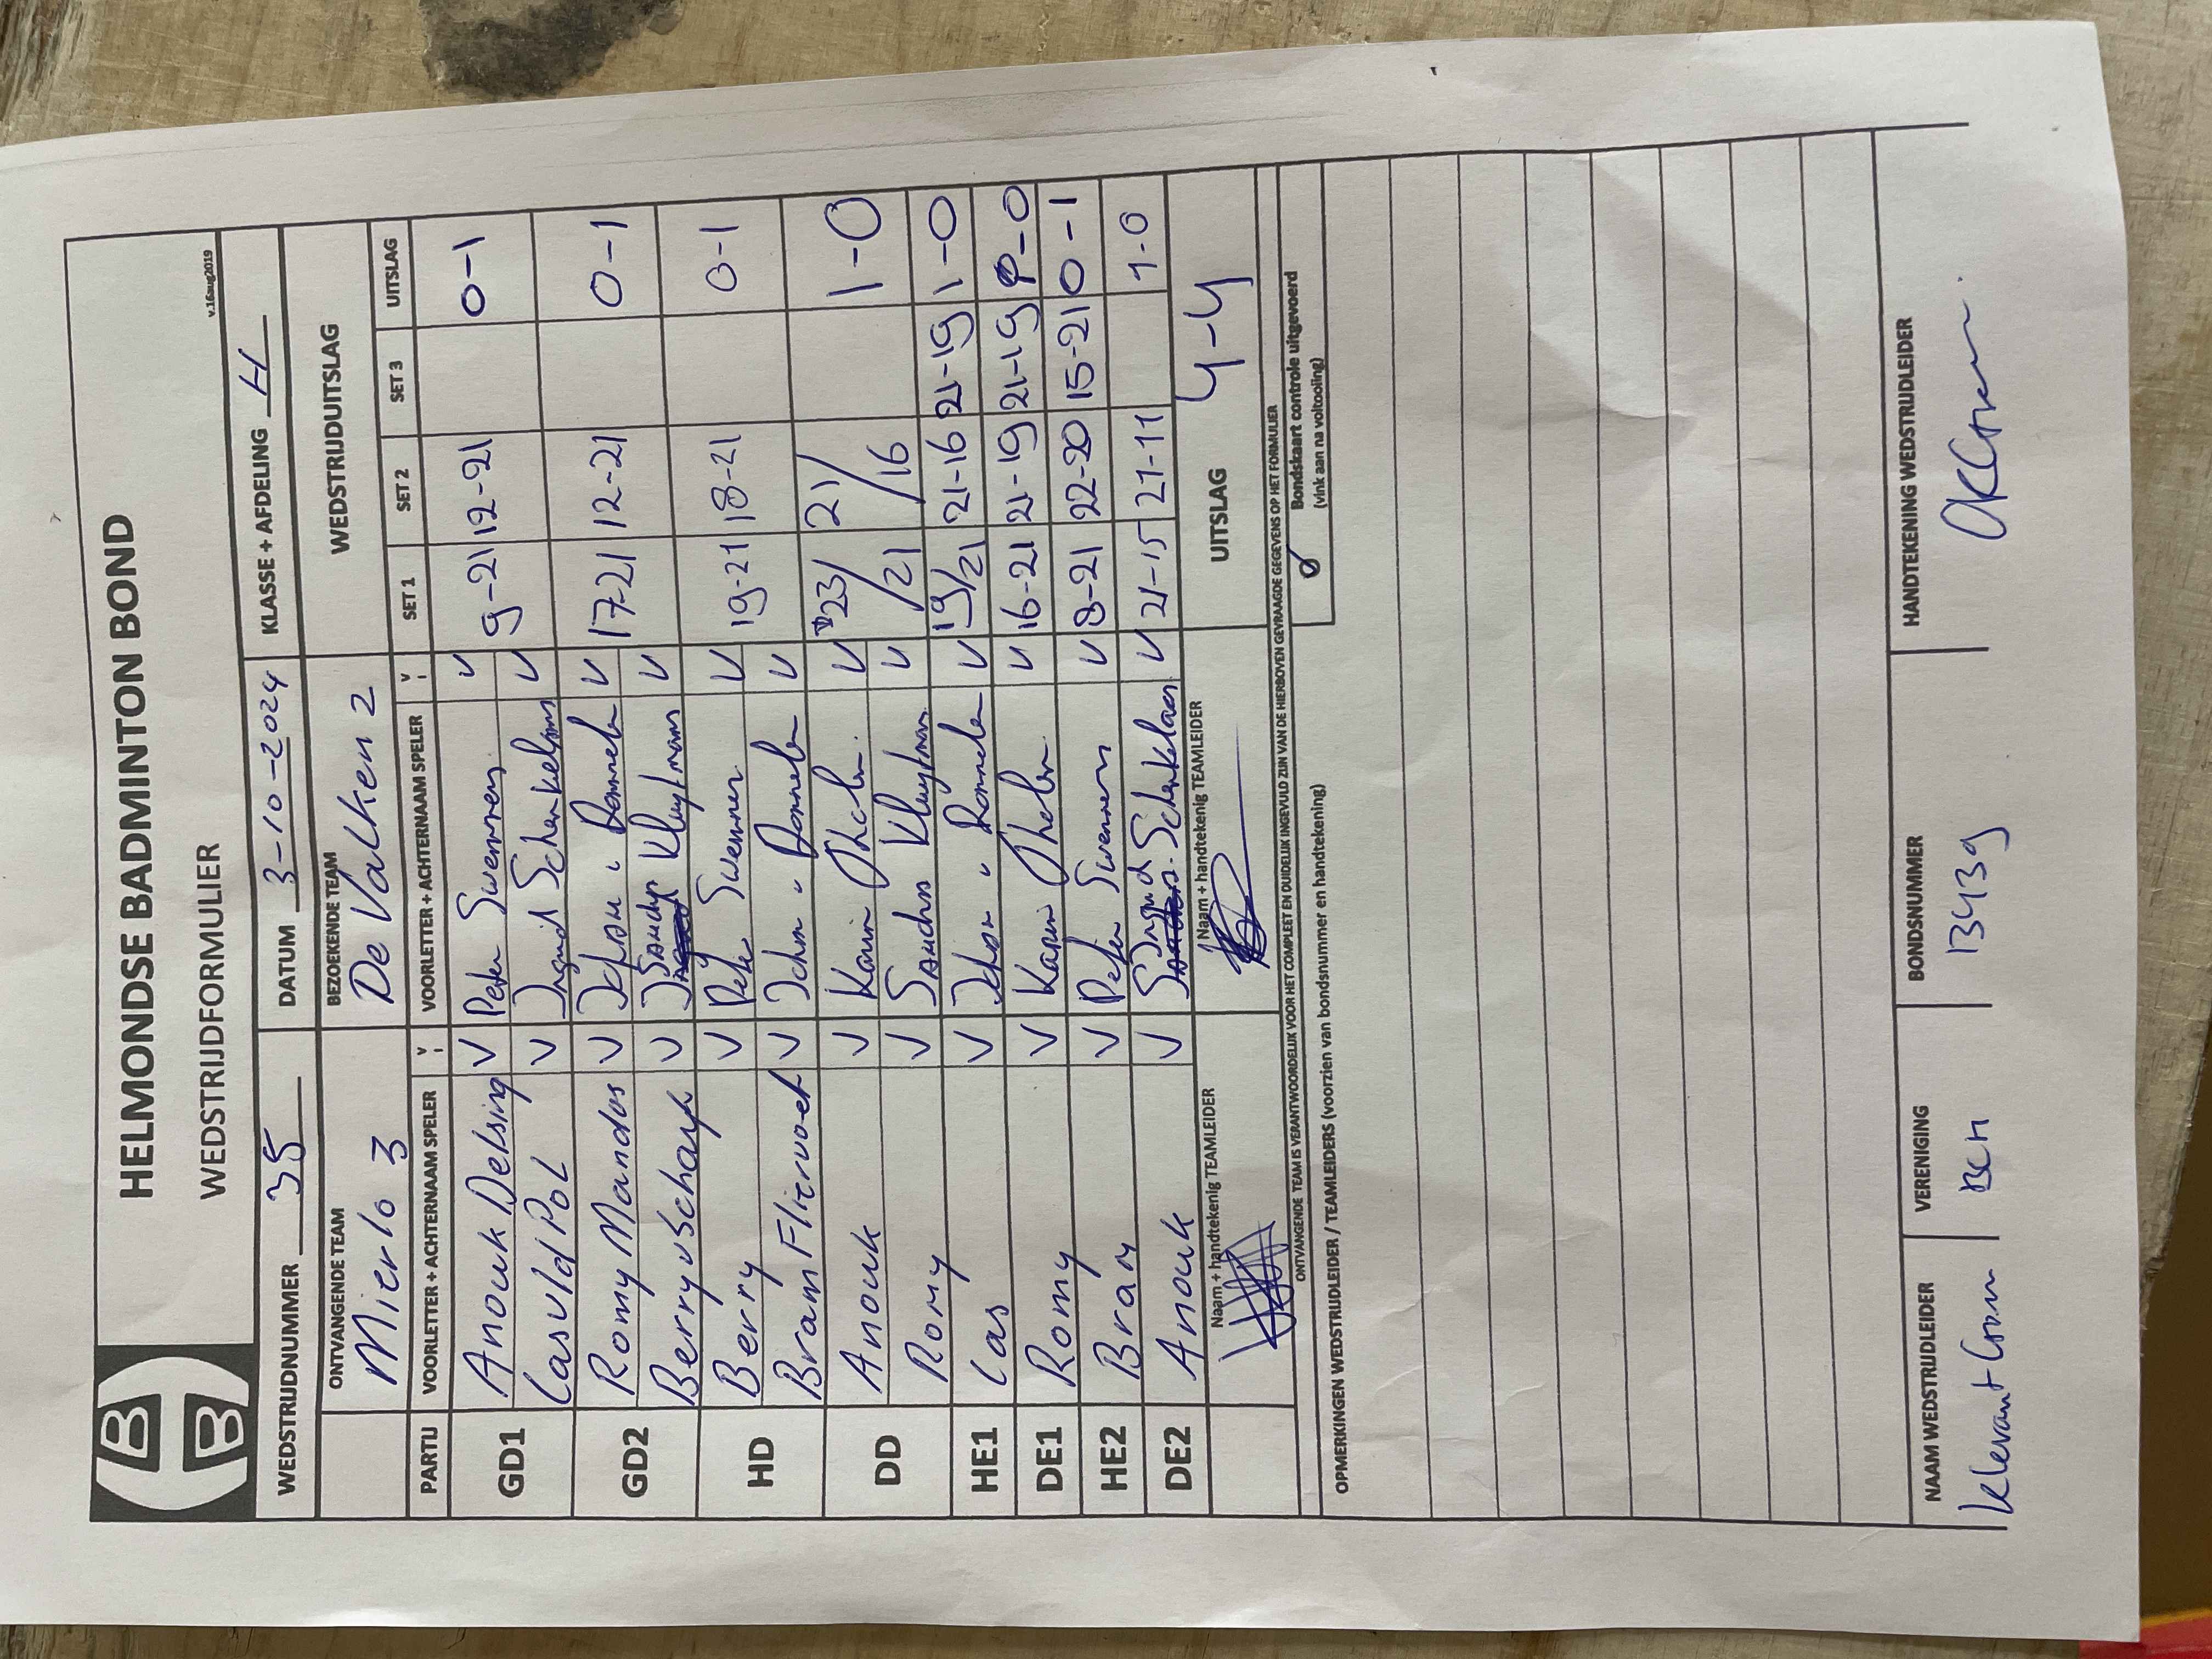 HELMONDSE BADMINTON BOND
WEDSTRIJDFORMULIER
v.16aug2019
WEDSTRIJDNUMMER 35 DATUM 3-10-2024 KLASSE + AFDELING H
ONTVANGENDE TEAM BEZOEKENDE TEAM WEDSTRIJDUITSLAG
Mierlo 3 De Valken 2
PARTIJ VOORLETTER + ACHTERNAAM SPELER V VOORLETTER + ACHTERNAAM SPELER V SET 1 SET 2 SET 3 UITSLAG
GD1 Anouk Delsing V Peter Swennen V 9-21 12-21 0-1
Cas vld Pol V Ingrid V
GD2 Romy Mandos V V 17-21 12-21 0-1
Berry v Schayk V Sandra V
HD Berry V Peter Swennen V 19-21 18-21 0-1
Bram Fliervoet V V
DD Anouk V Karin V 23/21 21/16 1-0
Romy V V
HE1 Cas V V 19/21 21-16 21-19 1-0
DE1 Romy V Karin V 16-21 21-19 21-19 1-0
HE2 Bram V Peter Swennen V 8-21 22-20 15-21 0-1
DE2 Anouk V Ingrid Schenkelaars V 21-15 21-11 1-0
Naam + handtekenig TEAMLEIDER Naam + handtekenig TEAMLEIDER UITSLAG 4-4
ONTVANGENDE TEAM IS VERANTWOORDELIJK VOOR HET COMPLEET EN DUIDELIJK INGEVULD ZIJN VAN DE HIERBOVEN GEVRAAGDE GEGEVENS OP HET FORMULIER
OPMERKINGEN WEDSTRIJDLEIDER / TEAMLEIDERS (voorzien van bondsnummer en handtekening) Bondskaart controle uitgevoerd
(vink aan na voltooiing)
NAAM WEDSTRIJDLEIDER VERENIGING BONDSNUMMER HANDTEKENING WEDSTRIJDLEIDER
BCH 13439